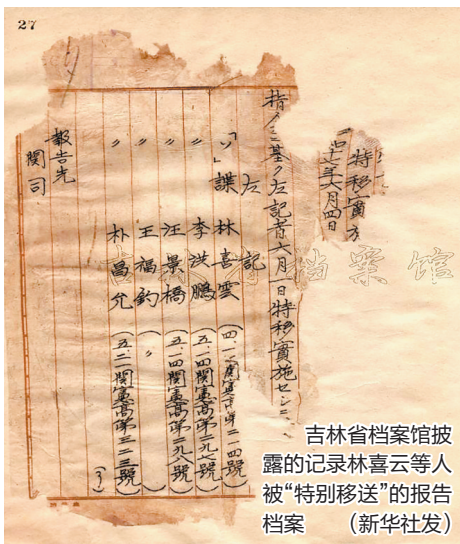 27
特移實方
七年六月四日
指ノ三基ノ左記者六月一日特移實施セシニ
左記
「ソ」諜 林喜雲 (四、一〇關憲高第二一四號)
〃 李洪鵬 (五、一四關憲高第二九七號)
〃 汪景橋 (五、一四關憲高第二九八號)
〃 王福釣 ( 〃 )
〃 朴昌允 (五、二一關憲高第三二三號)
(了)
報告先
関司
吉林省档案馆
吉林省档案馆披
露的记录林喜云等人
被“特别移送”的报告
档案 (新华社发)